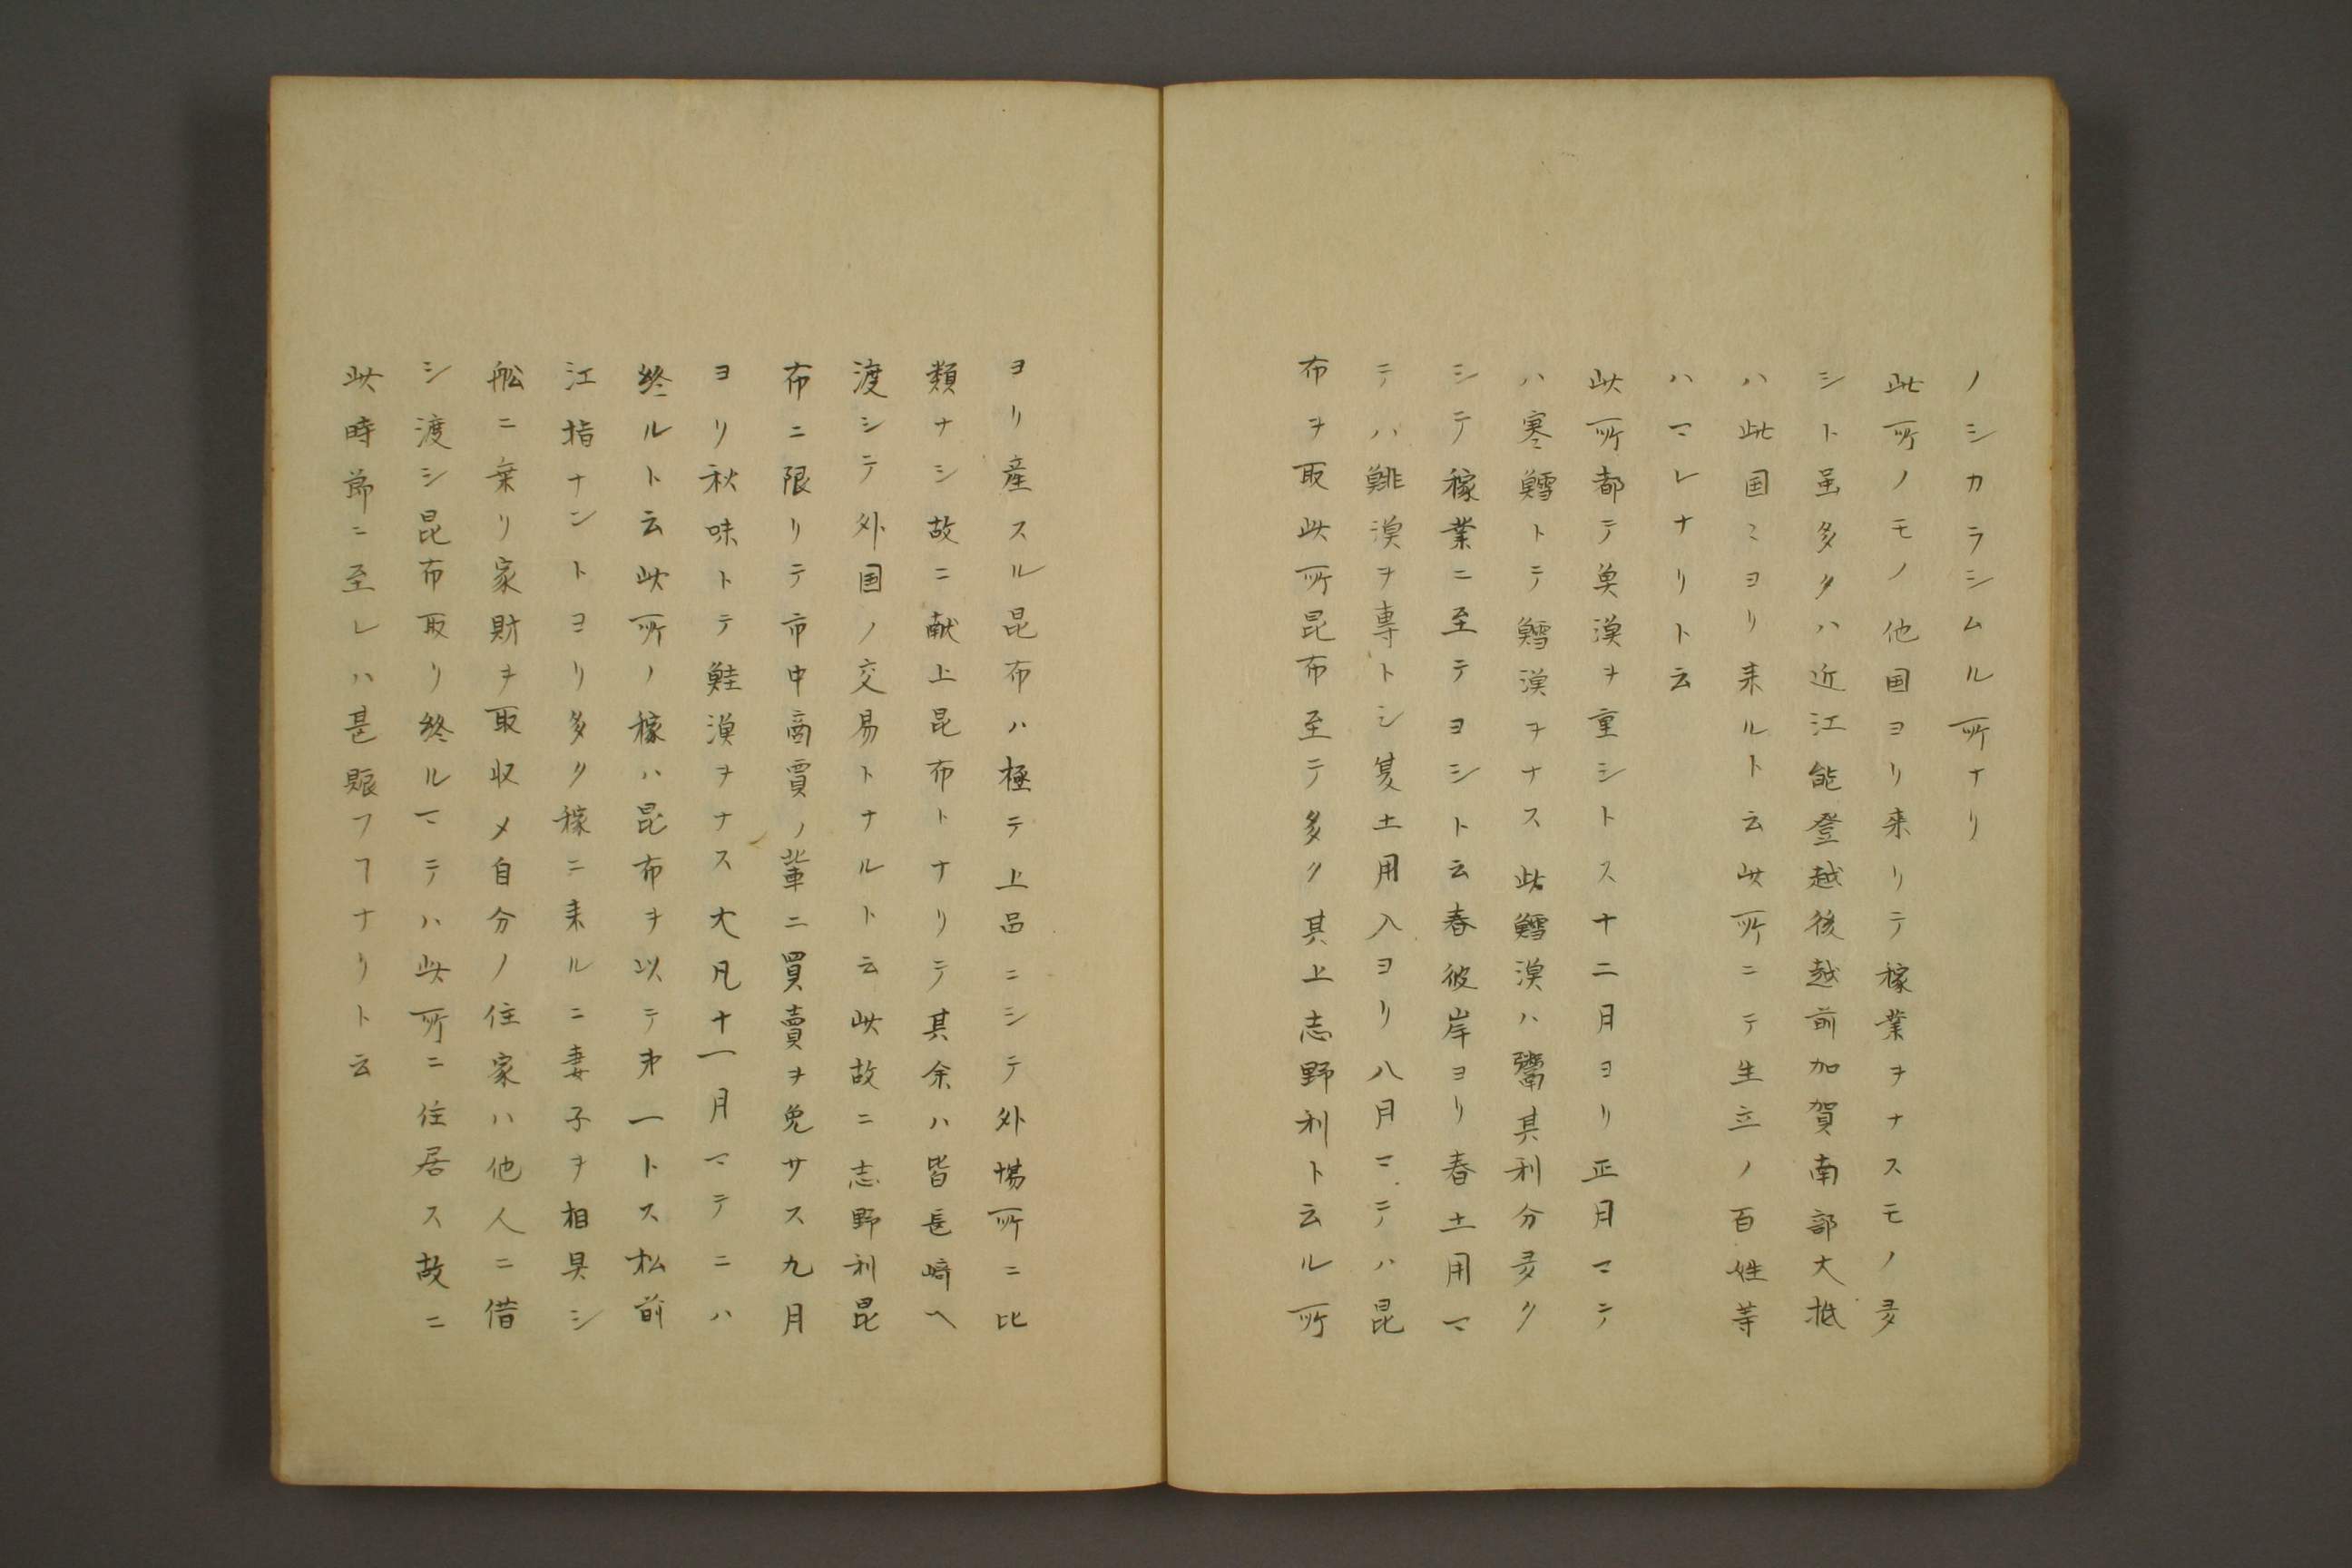 ノシカラシムル所ナリ
此所ノモノ他国ヨリ来リテ稼業ヲナスモノ多
シト虽多クハ近江能登越後越前加賀南部大抵
ハ此国〻ヨリ来ルト云此所ニテ生立ノ百姓等
ハマレナリト云
此所都テ奥漠ヲ重シトス十二月ヨリ正月マテ
ハ寒鱈トテ鱈漠ヲナス此鱈漠ハ鬻其利分多ク
シテ稼業ニ至テヨシト云春彼岸ヨリ春土用マ
テハ鯡漠ヲ専トシ夏土用入ヨリ八月マテハ昆
布ヲ取此所昆布至テ多ク其上志野利ト云ル所
ヨリ産スル昆布ハ極テ上品ニシテ外場所ニ比
類ナシ故ニ献上昆布トナリテ其余ハ皆長崎ヘ
渡シテ外国ノ交易トナルト云此故ニ志野利昆
布ニ限リテ市中商賈ノ輩ニ買賣ヲ免サス九月
ヨリ秋味トテ鮭漠ヲナス大凡十一月マテニハ
終ルト云此所ノ稼ハ昆布ヲ以テ第一トス松前
江指ナントヨリ多ク稼ニ来ルニ妻子ヲ相具シ
舩ニ乗リ家財ヲ取収メ自分ノ住家ハ他人ニ借
シ渡シ昆布取リ終ルマテハ此所ニ住居ス故ニ
此時節ニ至レハ甚賑フヿナリト云